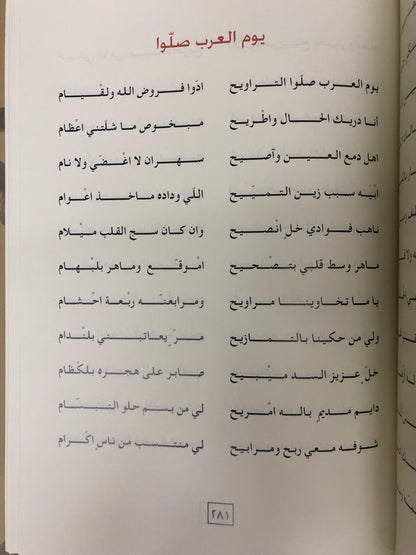 يوم العرب صلّوا
يوم العرب صلّوا التراويح ادّوا فروض الله ولقْيام
أنا دريك الحال واطْريح مبخوص ما شلّتني اعْظام
اهل دمع العين وآصيح سهران لا اغْضي ولا نام
ابَيّه سبب زين التميّيح اللّي وداده ماخذ اعْوام
ناهب فوادي خلٍ انْصيح وان كان سج القلب ميْلام
ماهر وسط قلبي بتصْحيح امْوقّع وماهر بلبْهام
يا ما تخاوينا مراويح ومرابعنه ربْعة احْشام
ولي من حكينا بالتمازيح مرٍّ يعاتبني بلنْدام
خلٍّ عزيز السد مْيبيح صابر على هجره بلكظام
دايم مديمٍ باله امْريح لي من بسم حلو التبسّام
شوفه معي ربح ومرابيح لي منتسب من ناسٍ اكْرام
٢٨١